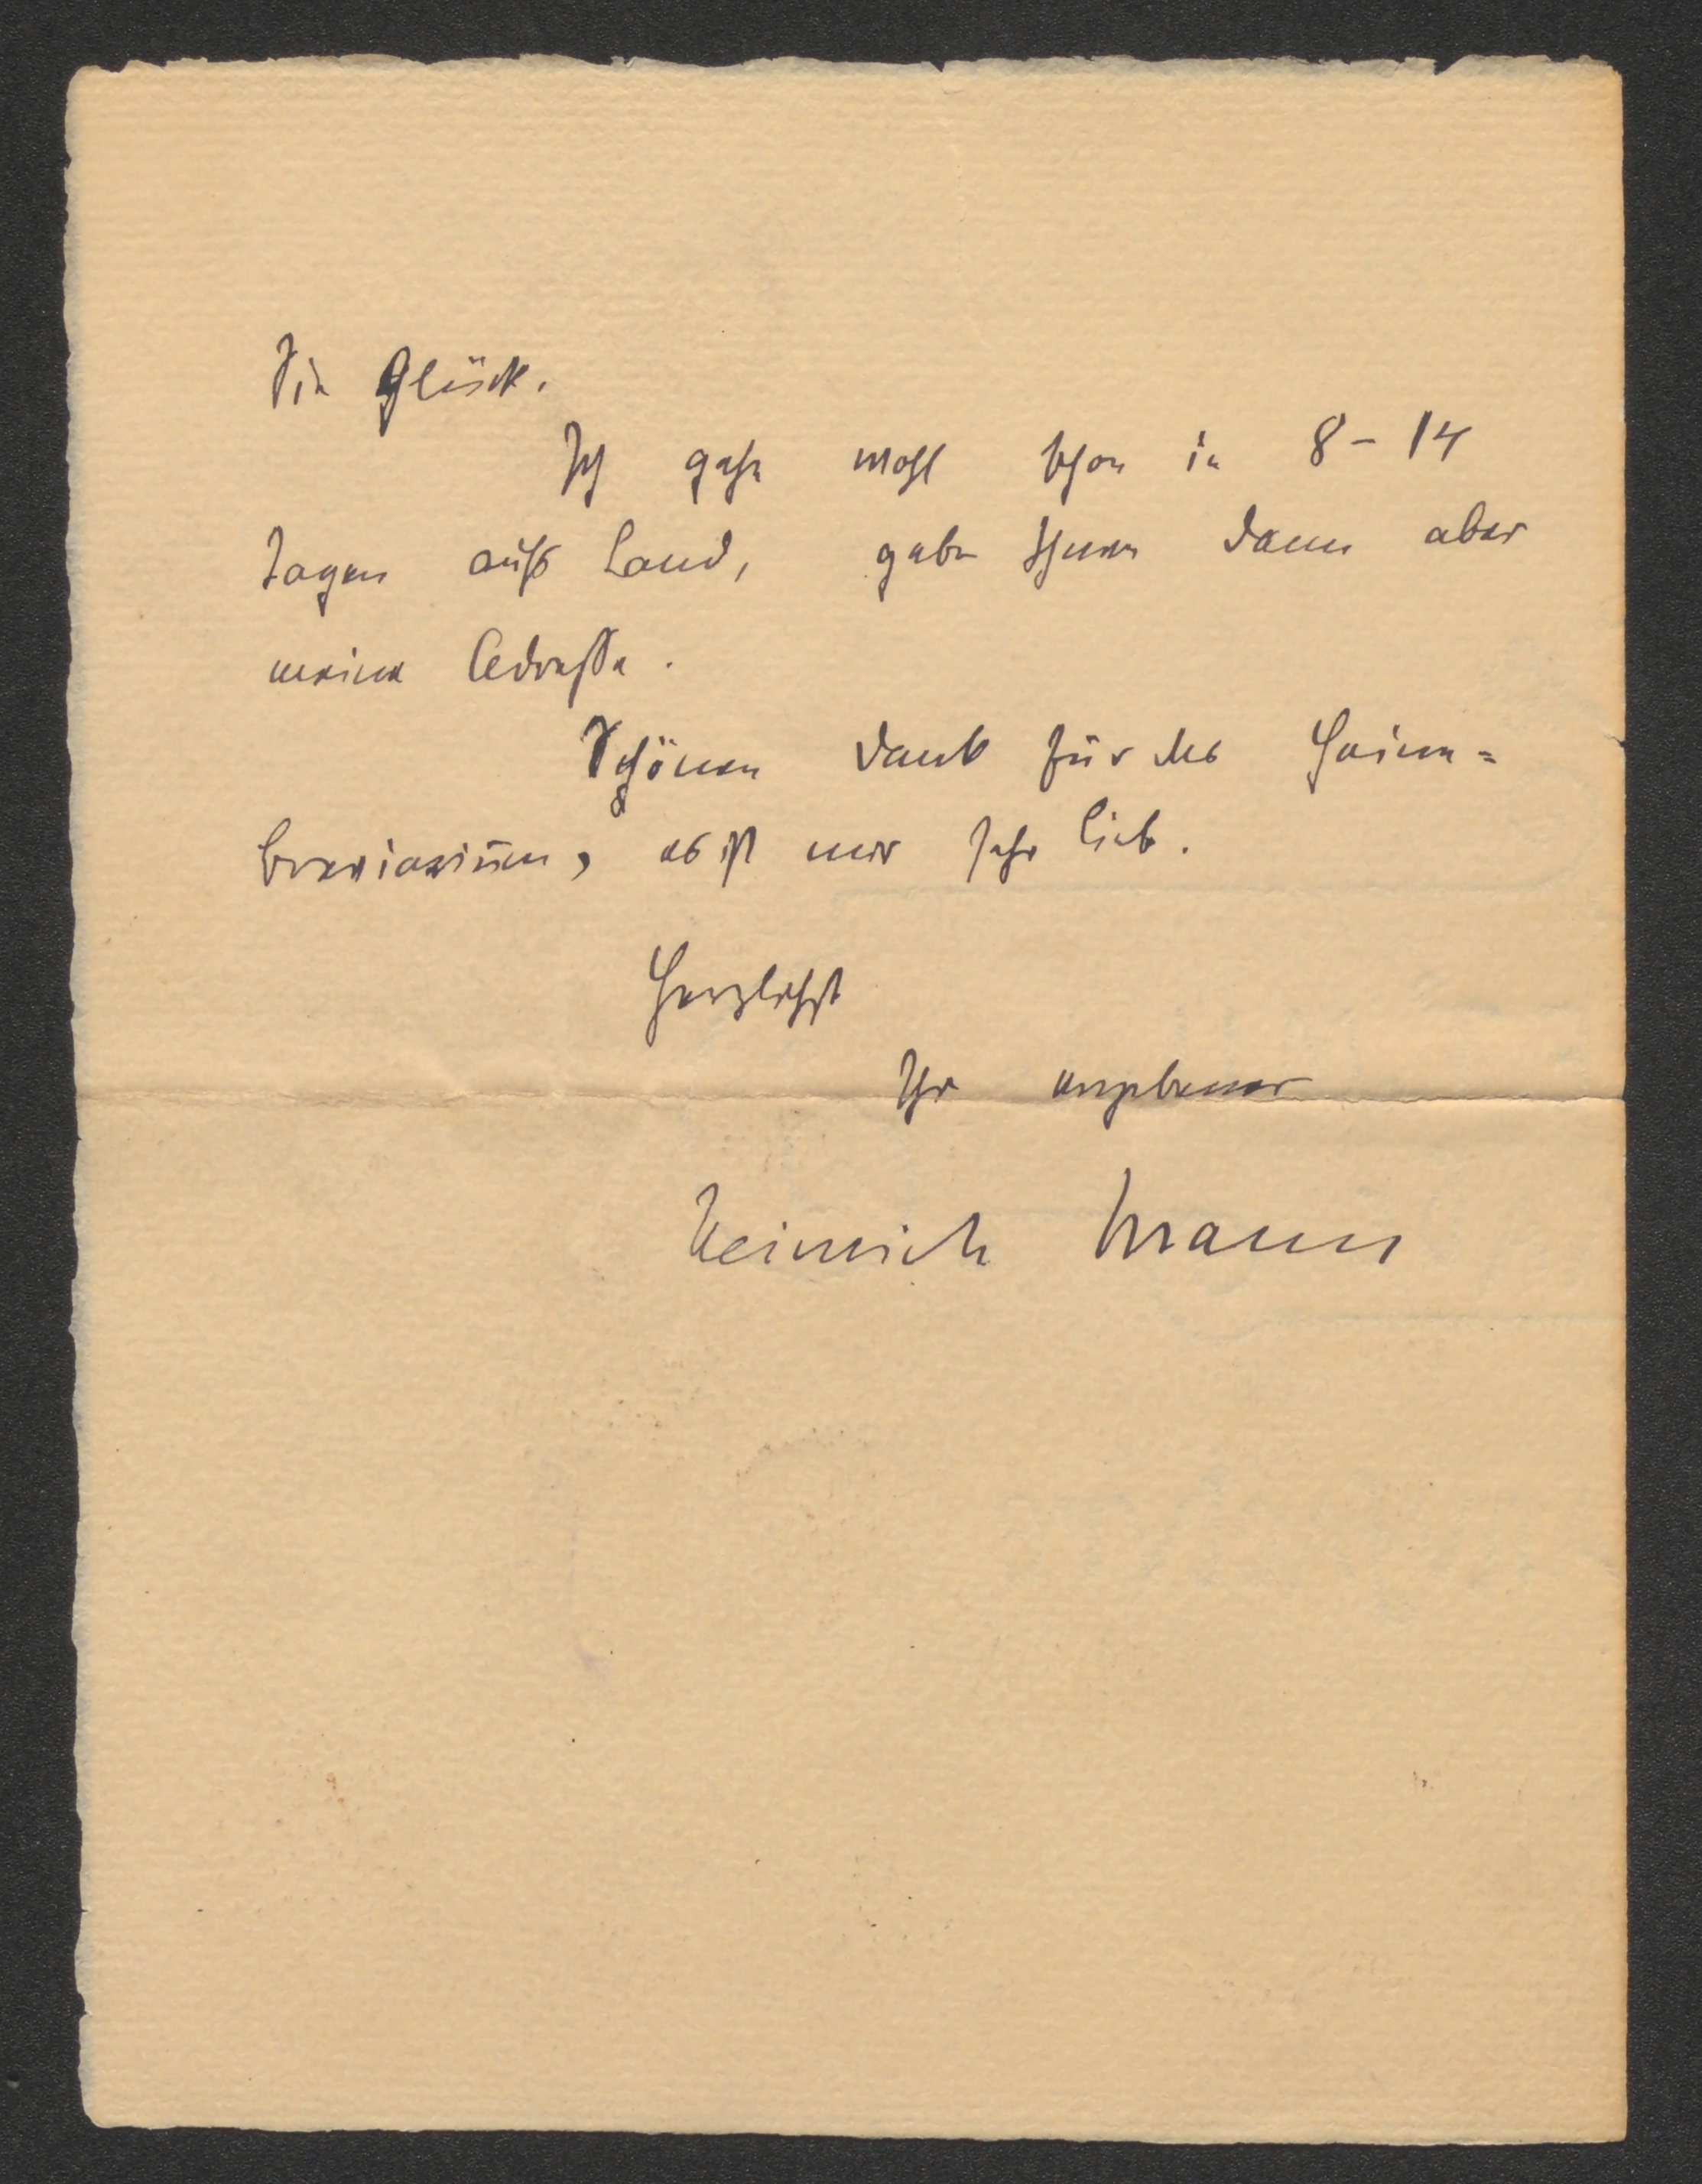 Sie Glück.
Ich gehe wohl schon in 8 - 14
Tagen aufs Land, gebe Ihnen dann aber
meine Adresse.
Schönen Dank für das Heine=
breviarium, es ist mir sehr lieb.
Herzlichst
Ihr ergebener
Heinrich Mann